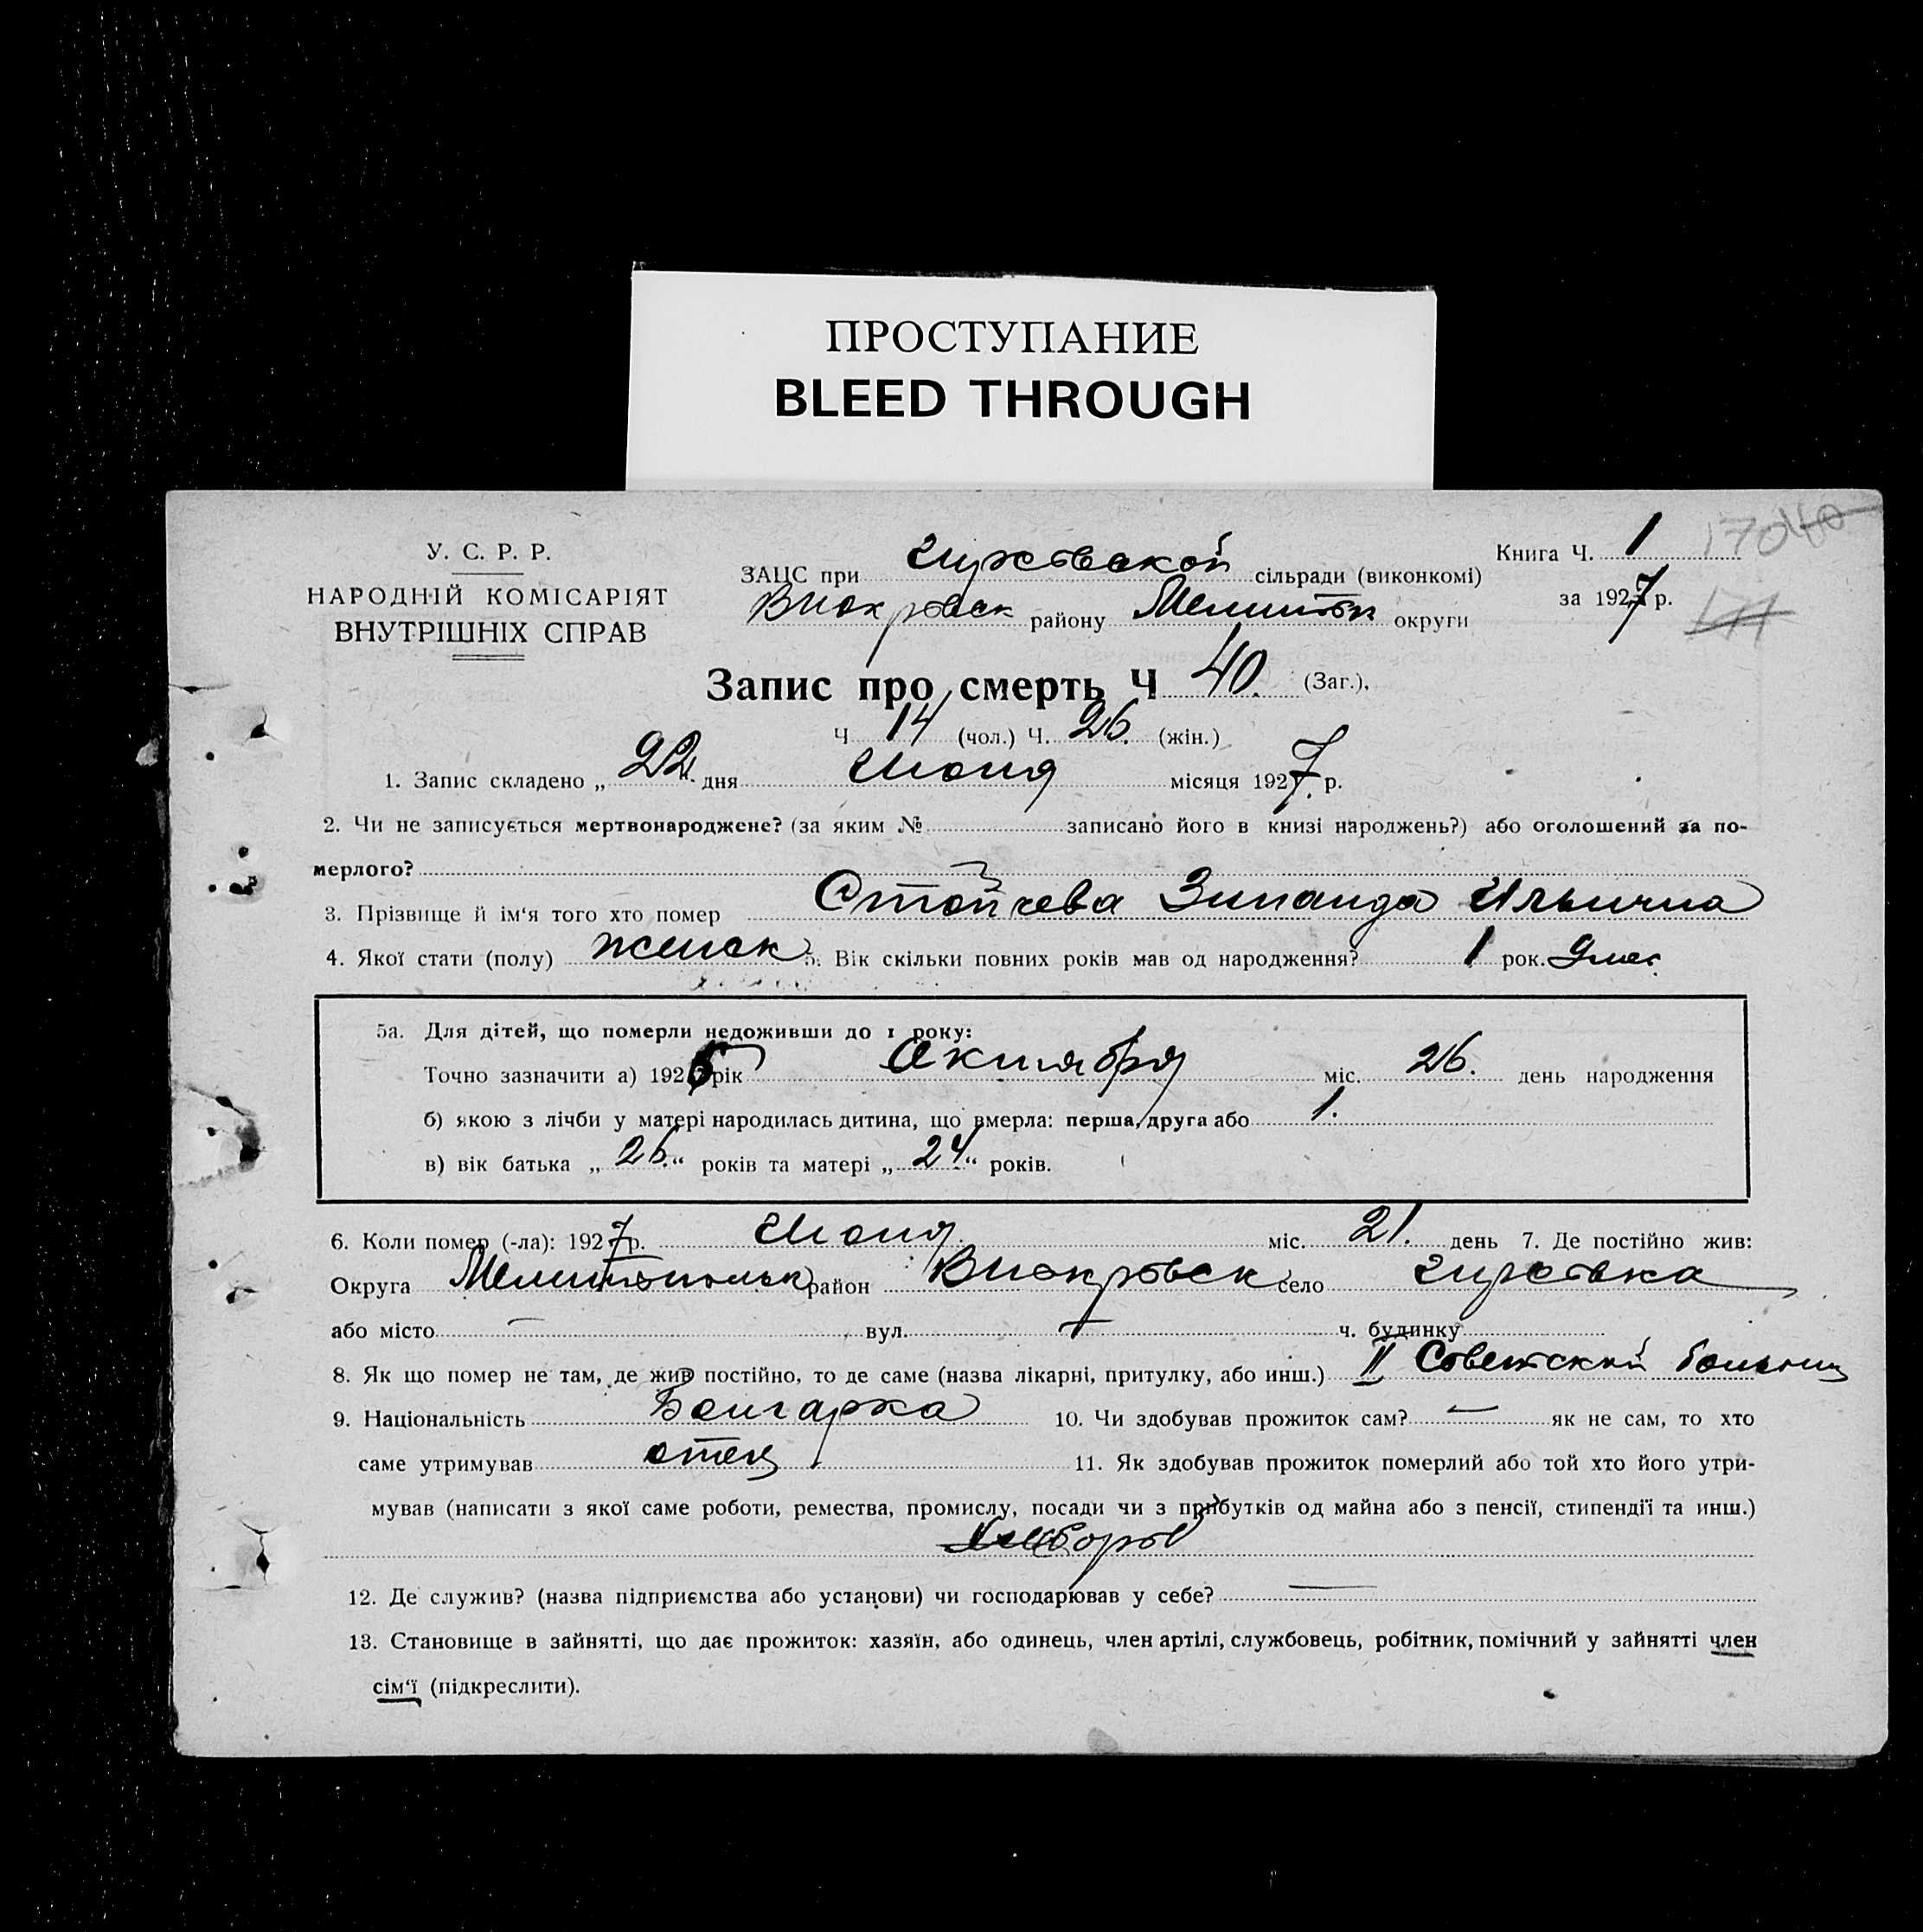 ПРОСТУПАНИЕ
BLEED THROUGH
У. С. Р. Р.
НАРОДНІЙ КОМІСАРІЯТ
ВНУТРІШНІХ СПРАВ
ЗАЦС при Гирсовской сільради (виконкомі)
району округи
Книга Ч. 1
за 1927 р.
Запис про смерть Ч 40. (Заг.).
Ч 14 (чол.) Ч. 26. (жін.)
1. Запис складено „ 22 дня Июня місяця 1927 р.
2. Чи не записується мертвонароджене? (за яким № записано його в книзі народжень?) або оголошений за по-
мерлого?
3. Прізвище й ім‘я того хто помер Стойчева Зинаида Ильична
4. Якої стати (полу) женск 5. Вік скільки повних років мав од народження? 1 рок. 9 мес
5а. Для дітей, що померли недоживши до 1 року:
Точно зазначити а) 1926 рік Октября міс. 26. день народження
б) якою з лічби у матері народилась дитина, що вмерла: перша, друга або 1.
в) вік батька „ 26. “ років та матері „ 24 “ років.
6. Коли помер (-ла): 1927 р. Июня міс. 21. день 7. Де постійно жив:
Округа Мелитопольск район село Гирсовка
або місто — вул. — ч. будинку
8. Як що помер не там, де жив постійно, то де саме (назва лікарні, притулку, або инш.) II Советской больниц
9. Національність Болгарка 10. Чи здобував прожиток сам? — як не сам, то хто
саме утримував отец 11. Як здобував прожиток померлий або той хто його утри-
мував (написати з якої саме роботи, ремества, промислу, посади чи з прибутків од майна або з пенсії, стипендії та инш.)
12. Де служив? (назва підприємства або установи) чи господарював у себе? —
13. Становище в зайнятті, що дає прожиток: хазяїн, або одинець, член артілі, службовець, робітник, помічний у зайнятті член
сім‘ї (підкреслити).